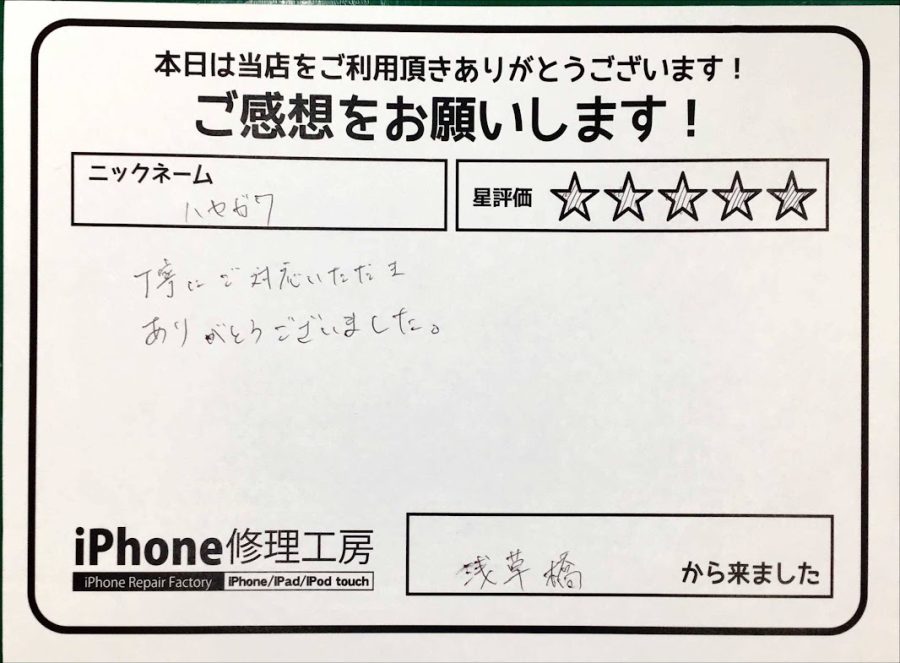 本日は当店をご利用頂きありがとうございます！
ご感想をお願いします！
ニックネーム
ハヤガワ
星評価
丁寧にご対応いただき
ありがとうございました。
iPhone修理工房
iPhone Repair Factory iPhone/iPad/iPod touch
浅草橋 から来ました